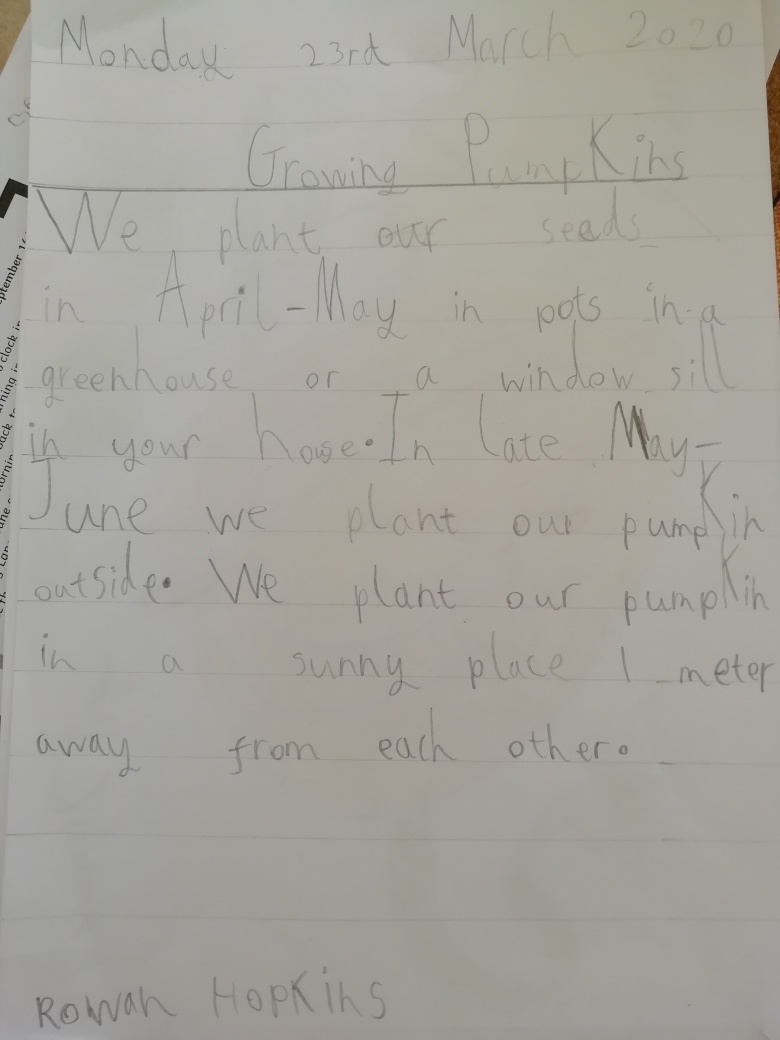 Monday 23rd March 2020
Growing Pumpkins
We plant our seeds
in April-May in pots in a
greenhouse or a window sill
in your house. In late May-
June we plant our pumpkin
outside. We plant our pumpkin
in a sunny place 1 meter
away from each other.
Rowan Hopkins